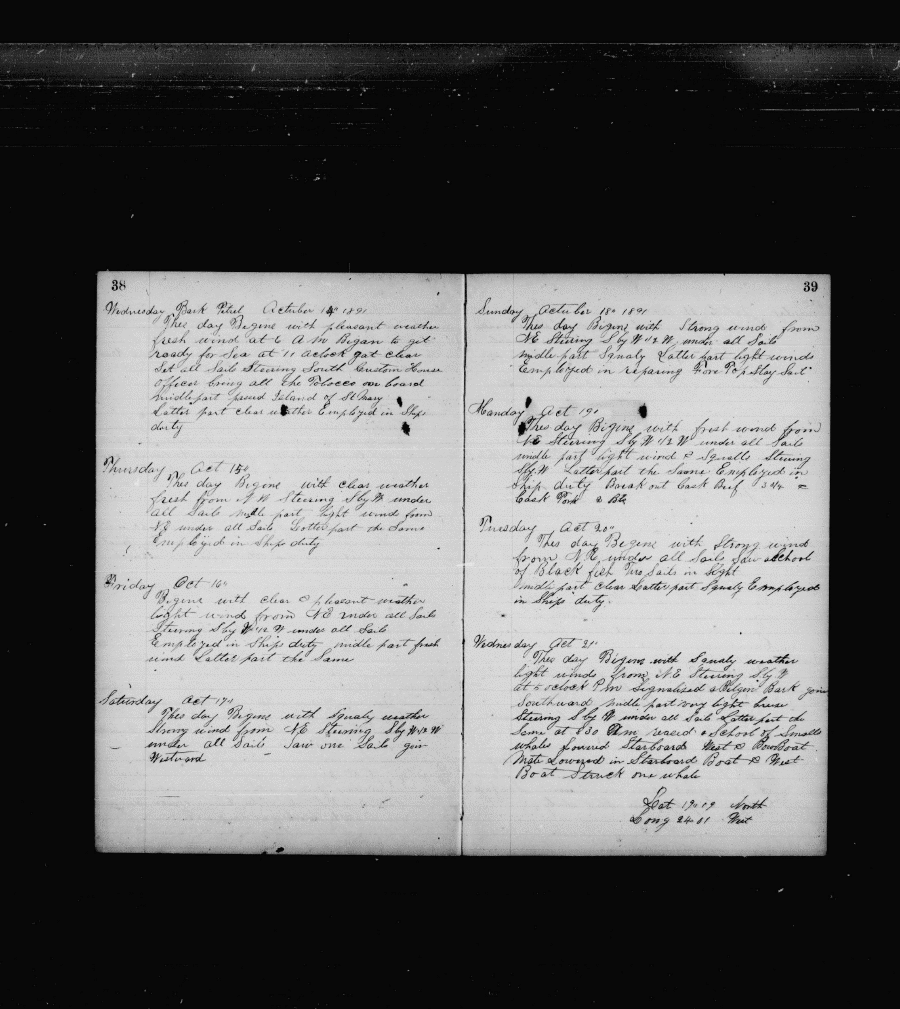 38
Wednesday Bark Petrel Actuber 14 1891
Thes day Begine with pleasant weather
fresh wind at 6 A M Began to get
ready for Sea at 11 Aclock got clear
Set all Sails Steering South Custom House
Officer bring all the Tobocco on board
middle part passed Island of St Mary
Latter part clear weather Employed in Ships
dorty
Thursday Oct 15
This day Begine with clear weather
fresh from N W Steering S by W under
all Sails midle part light wind from
NE under all Sails Latter part the Same
Employed in Ships duty
Friday Oct 16
Begine with clear & pleasant weather
light wind from NE under all Sails
Steering S by W 1/2 W under all Sails
Employed in Ships duty midle part fresh
wind Latter part the Same
Saturday Oct 17
Thes day Begine with Squaly weather
Strong wind from NE Steering S by W 1/2 W
under all Sails Saw one Sails goin
Westward
39
Sunday Actuber 18 1891
Thes day Begine with Strong wind from
NE Steering S by W 1/2 W under all Sails
midle part Squaly Latter part light winds
Employed in repairing Fore Stay Sail
Manday Oct 19
Thes day Bigine with fresh wind from
NE Steering S by W 1/2 W under all Sails
midle part light wind & Squalls Steering
S by W Latter part the Same Employed in
Ship duty Break out Cask Beef
Cask Pork 2 Bls
Tuesday Oct 20
This day Begine with Strong wind
from NE under all Sails Saw a School
of Black fish Two Sails in Sight
midle part clear Latter part Squaly Employed
in Ships duty.
Wednesday Oct 21
Thes day Bigine with Squaly weather
light winds from NE Steering S by W
at 5 oclock P m Signalised a Belgin Bark goin
Southward midle part very light breese
Steering S by W under all Sails Latter part the
Same at 8 30 raised a School of Smalle
whales Starboard West & Bow Boat
Mate Lowered in Starboard Boat & West
Boat Struck one whale
Lat 19 09 North
Long 24 01 West